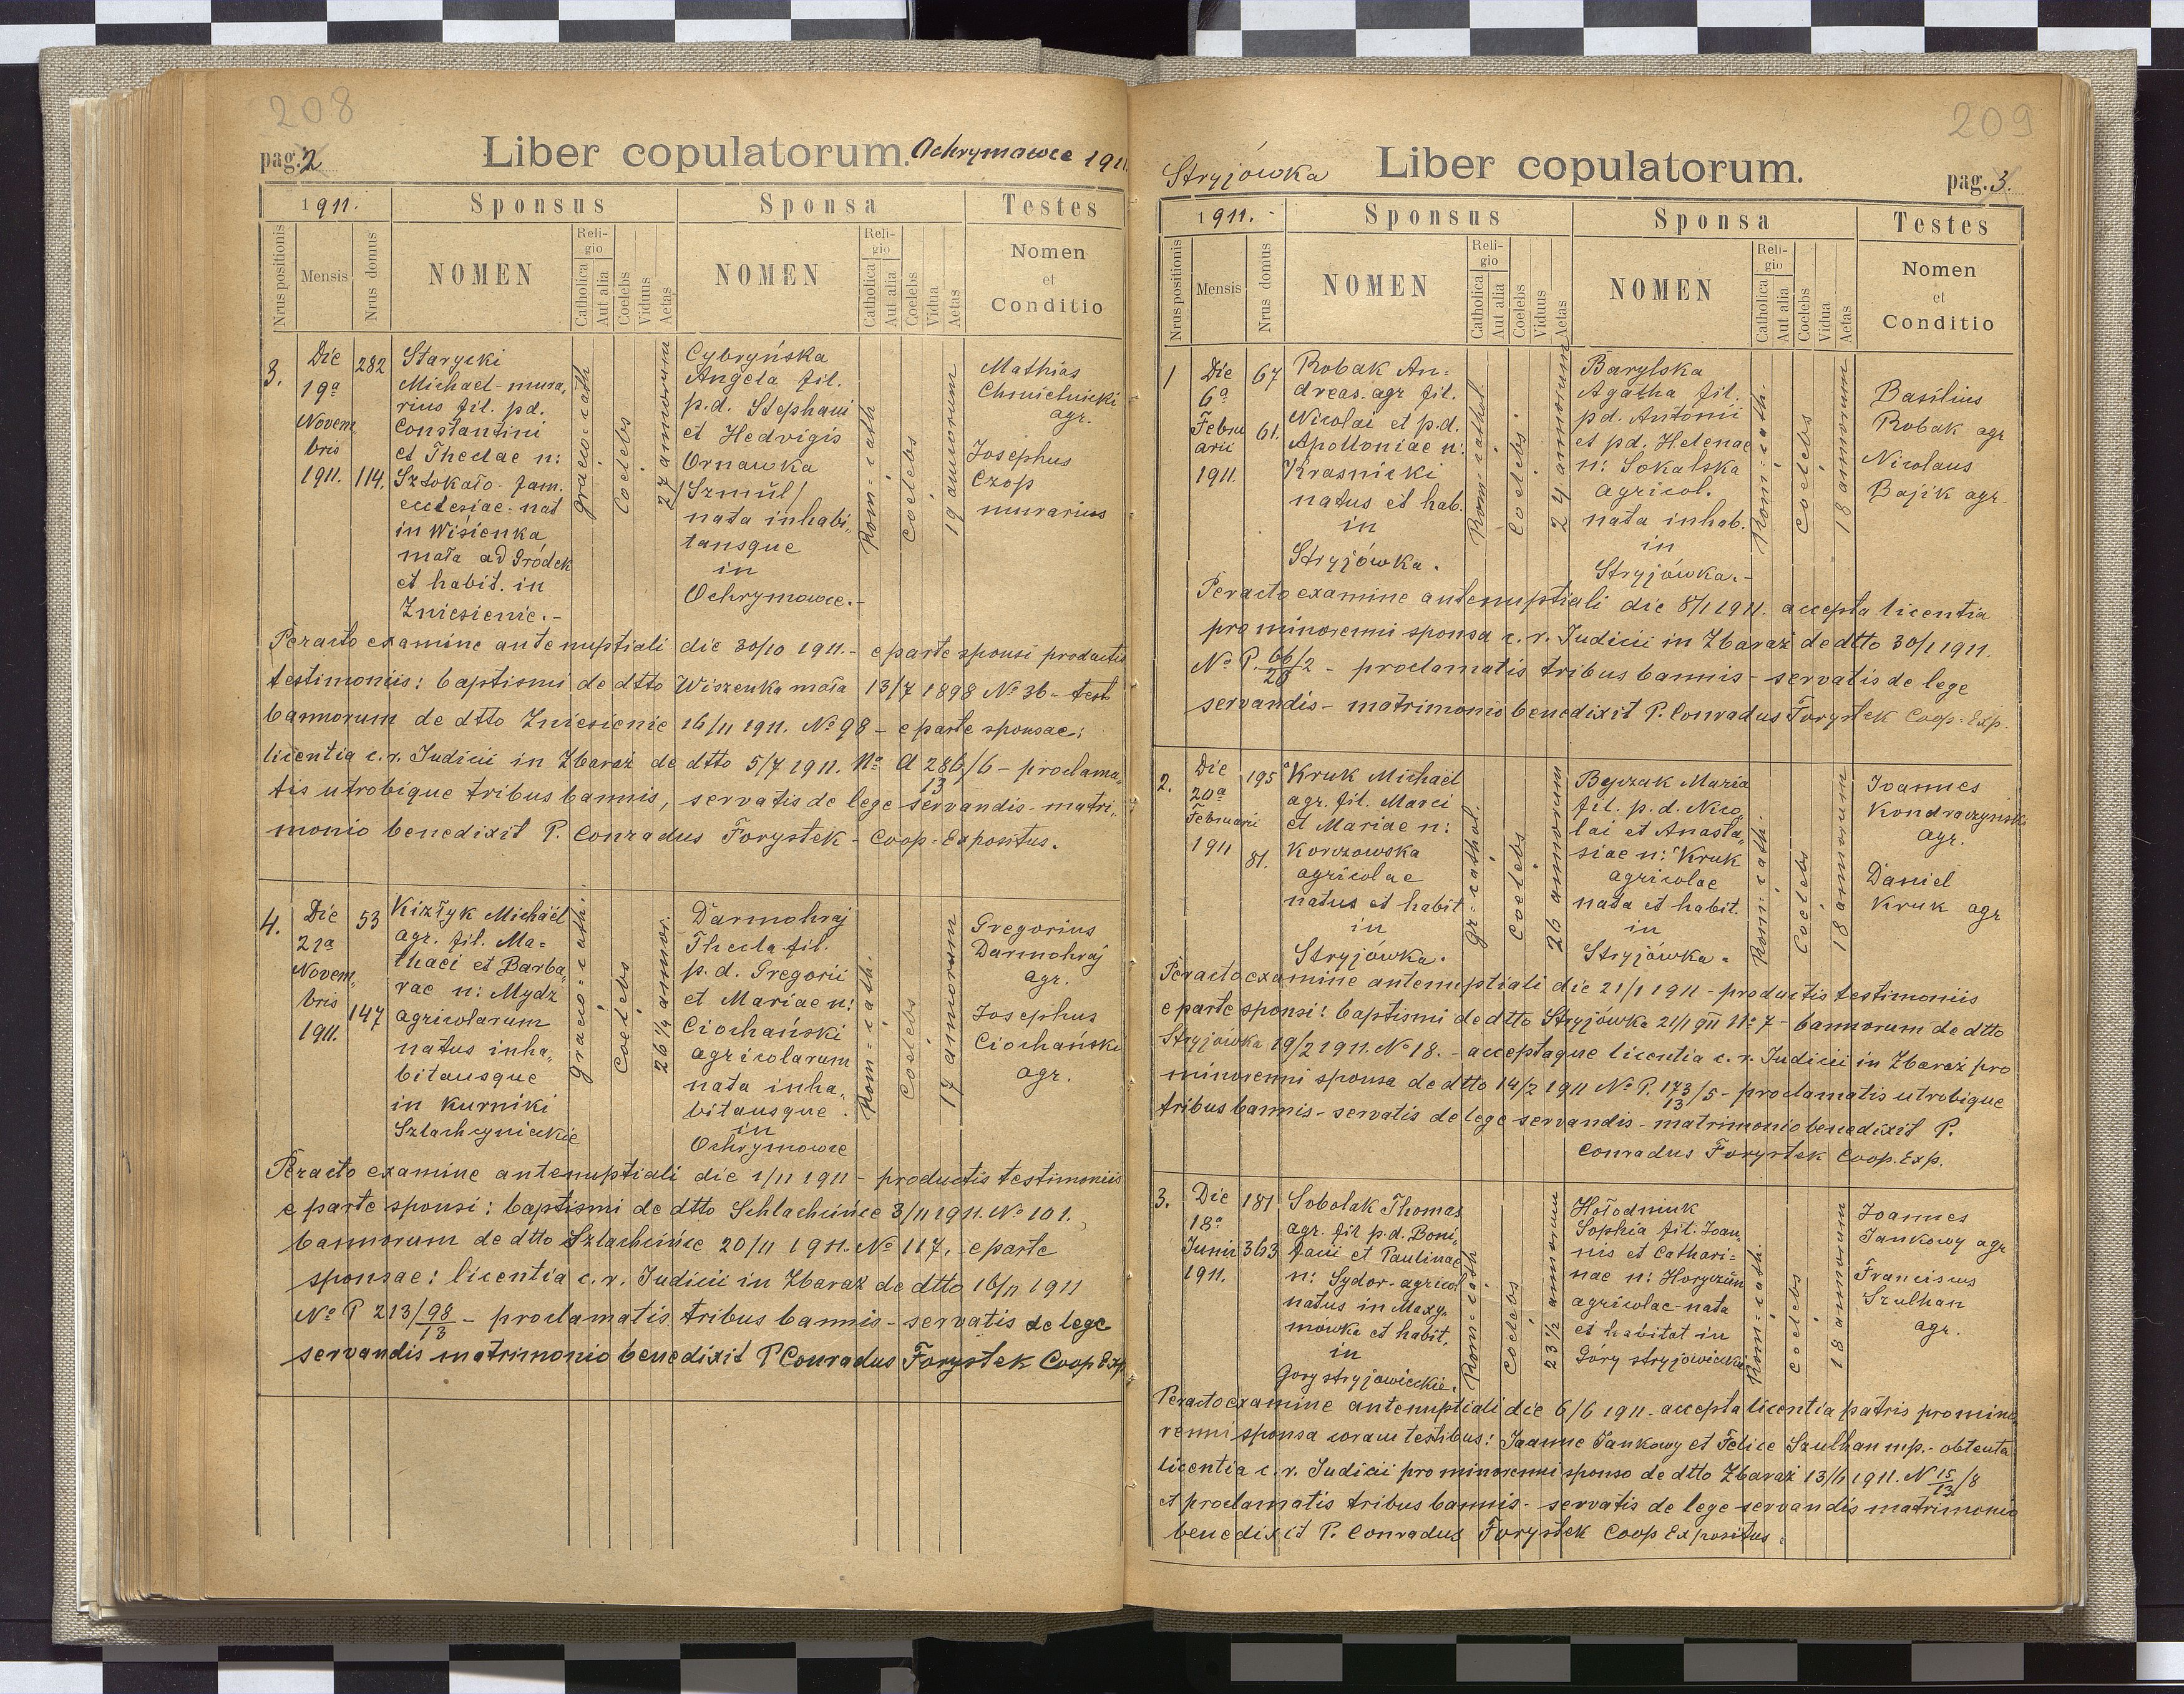 208
pag. 2 Liber copulatorum. Ochrymowce 1911
1911. Sponsus Sponsa Testes
Nrus positionis
Mensis
Nrus domus
NOMEN
Religio
Catholica
Aut alia
Coelebs
Viduus
Aetas
NOMEN
Religio
Catholica
Aut alia
Coelebs
Vidua
Aetas
Nomen
et
Conditio
3.
Die
19a
Novem
bris
1911.
282
114.
Starycki
Michael - mura,
rius fil. pd.
Constantini
et Theclae n:
Sztokało - fam.
ecclesiae - nat
in Wisienka
mała ad Gródek
et habit. in
Zniesienie. -
graeco-cath
Coelebs
27 annorum
Cybryńska
Angela fil.
p.d. Stephani
et Hedvigis
Ornawka
/Szmul/
nata inhabi,
tansque
in
Ochrymowce. -
Rom-cath
Coelebs
19 annorum
Mathias
Chmielnicki
agr.
Josephus
Czop
murarius
Peracto examine antenuptiali die 30/10 1911. - e parte sponsi productis
testimoniis: baptismi de dtto Wiszenka mała 13/7 1898 No 36 - test
bannorum de dtto Zniesienie 16/11 1911. No 98 - e parte sponsae:
licentia c.r. Judicii in Zbaraż de dtto 5/7 1911. No A 286/13/6 - proclama,
tis utrobique tribus bannis, servatis de lege servandis - matri,
monio benedixit P. Conradus Forystek - Coop. Expositus.
4.
Die
21a
Novem,
bris
1911.
53
147
Kizłyk Michaël
agr. fil. Ma=
thaei et Barba,
rae n: Mydz
agricolarum
natus inha,
bitansque
in Kurniki
Szlachcynieckie
graeco-cath:
Coelebs
26 1/4 annor.
Darmohraj
Thecla fil.
p.d. Gregorii
et Mariae n:
Ciochański
agricolarum
nata inha,
bitansque
in
Ochrymowce
Rom-cath.
Coelebs
17 annorum
Gregorius
Darmohraj
agr.
Josephus
Ciochański
agr.
Peracto examine antenuptiali die 1/11 1911 - productis testimoniis
e parte sponsi: baptismi de dtto Schlacheińce 3/11 1911. No 101.
bannorum de dtto Szlacheińce 20/11 1911. No 117. - e parte
sponsae: licentia c.r. Judicii in Zbaraż de dtto 16/11 1911
No P 213/98/13 - proclamatis tribus bannis - servatis de lege
servandis matrimonio benedixit P Conradus Forystek Coop Exp.
209
Stryjówka Liber copulatorum. pag. 3.
1911. - Sponsus Sponsa Testes
Nrus positionis
Mensis
Nrus domus
NOMEN
Religio
Catholica
Aut alia
Coelebs
Viduus
Aetas
NOMEN
Religio
Catholica
Aut alia
Coelebs
Vidua
Aetas
Nomen
et
Conditio
1
Die
6a
Febru
arii
1911.
67
61.
Robak An=
dreas - agr fil.
Nicolai et p.d.
Apolloniae n:
Krasnicki
natus et hab.
in
Stryjówka.
Rom-cathol.
Coelebs
24 annorum
Barylska
Agatha fil.
pd. Antonii
et pd. Helenae
n: Sokalska
agricol.
nata inhab.
in
Stryjówka. -
Rom-cath.
Coelebs
18 annorum
Basilius
Robak agr
Nicolaus
Bajik agr.
Peracto examine antenuptiali die 8/1 1911. accepta licentia
pro minorenni sponsa c.r. Judicii in Zbaraż de dtto 30/1 1911.
No P. 66/20/2 - proclamatis tribus bannis - servatis de lege
servandis - matrimonio benedixit P. Conradus Forystek Coop. Exp.
2.
Die
20a
Februarii
1911
195
81.
Kruk Michaël
agr. fil. Marci
et Mariae n:
Korzowska
agricolae
natus et habit
in
Stryjówka.
gr-cathol.
Coelebs
26 annorum
Byczak Maria
fil. p.d. Nico,
lai et Anasta,
siae n: Kruk
agricolae
nata et habit.
in
Stryjówka.
Rom-cath.
Coelebs
18 annorum
Joannes
Kondraczynski
agr.
Daniel
Kruk agr
Peracto examine antenuptiali die 21/1 1911 - productis testimoniis
e parte sponsi: baptismi de dtto Stryjówka 21/1 911 No 7 - bannorum de dtto
Stryjówka 19/2 1911. No 18. - acceptaque licentia c.r. Judicii in Zbaraż pro
minorenni sponsa de dtto 14/2 1911 No P. 173/13/5 - proclamatis utrobique
tribus bannis - servatis de lege servandis - matrimonio benedixit P.
Conradus Forystek Coop. Exp.
3.
Die
18a
Junii
1911.
181
363
Sobolak Thomas
agr. fil p.d. Boni,
facii et Paulinae
n: Sydor - agricol
natus in Maxy,
mówka et habit,
in
Gory stryjowieckie.
Rom-cath
Coelebs
23 1/2 annorum
Hołodniuk
Sophia fil. Joan,
nis et Cathari=
nae n: Horyczun
agricolae - nata
et habitat in
Góry stryjowieckie
Rom-cath.
Coelebs
18 annorum
Joannes
Jankowy agr
Franciscus
Szulhan
agr.
Peracto examine antenuptiali die 6/6 1911 - accepta licentia patris pro mino,
renni sponsa coram testibus: Joanne Jankowy et Felice Szulhan mp. - obtenta
licentia c.r. Judicii pro minorenni sponso de dtto Zbaraż 13/6 1911. N 15/13/8
et proclamatis tribus bannis - servatis de lege servandis matrimonio
benedixit P. Conradus Forystek Coop Expositus.